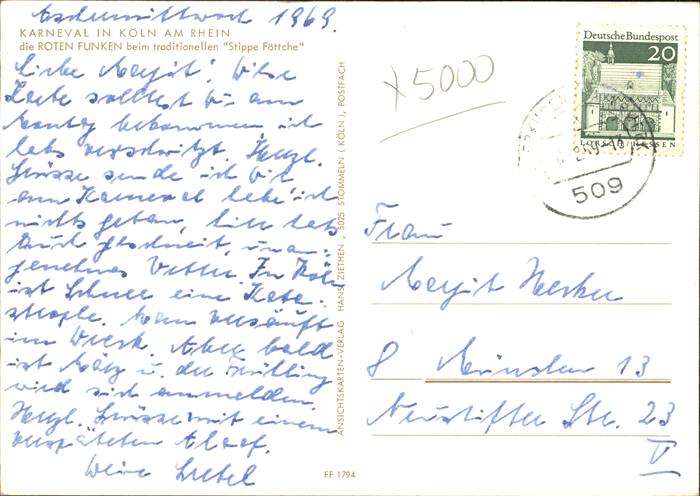 Aschermittwoch 1969.
KARNEVAL IN KÖLN AM RHEIN
die ROTEN FUNKEN beim traditionellen "Stippe Föttche"
Liebe Margit! Diese
Karte solltest Du am
Montag bekommen ich
habs verschwitzt. Herzl.
Grüsse sende ich Dir
am Karneval habe ich
nichts getan, hier hats
auch geschneit, unan-
genehmes Wetter. In Köln
ist Schnee eine Kata-
strophe. Man versäuft
im Dreck. Aber bald
ist März u. der Frühling
wird sich anmelden.
Herzl. Grüsse mit einem
verspäteten Alaaf.
Deine Gretel
ANSICHTSKARTEN-VERLAG HANS ZIETHEN, 5025 STOMMELN (KÖLN), POSTFACH
FF 1794
x5000
Deutsche Bundespost
20
LORSCH/HESSEN
509
Frau
Margit
8 München 13
Neustifter Str. 23
V